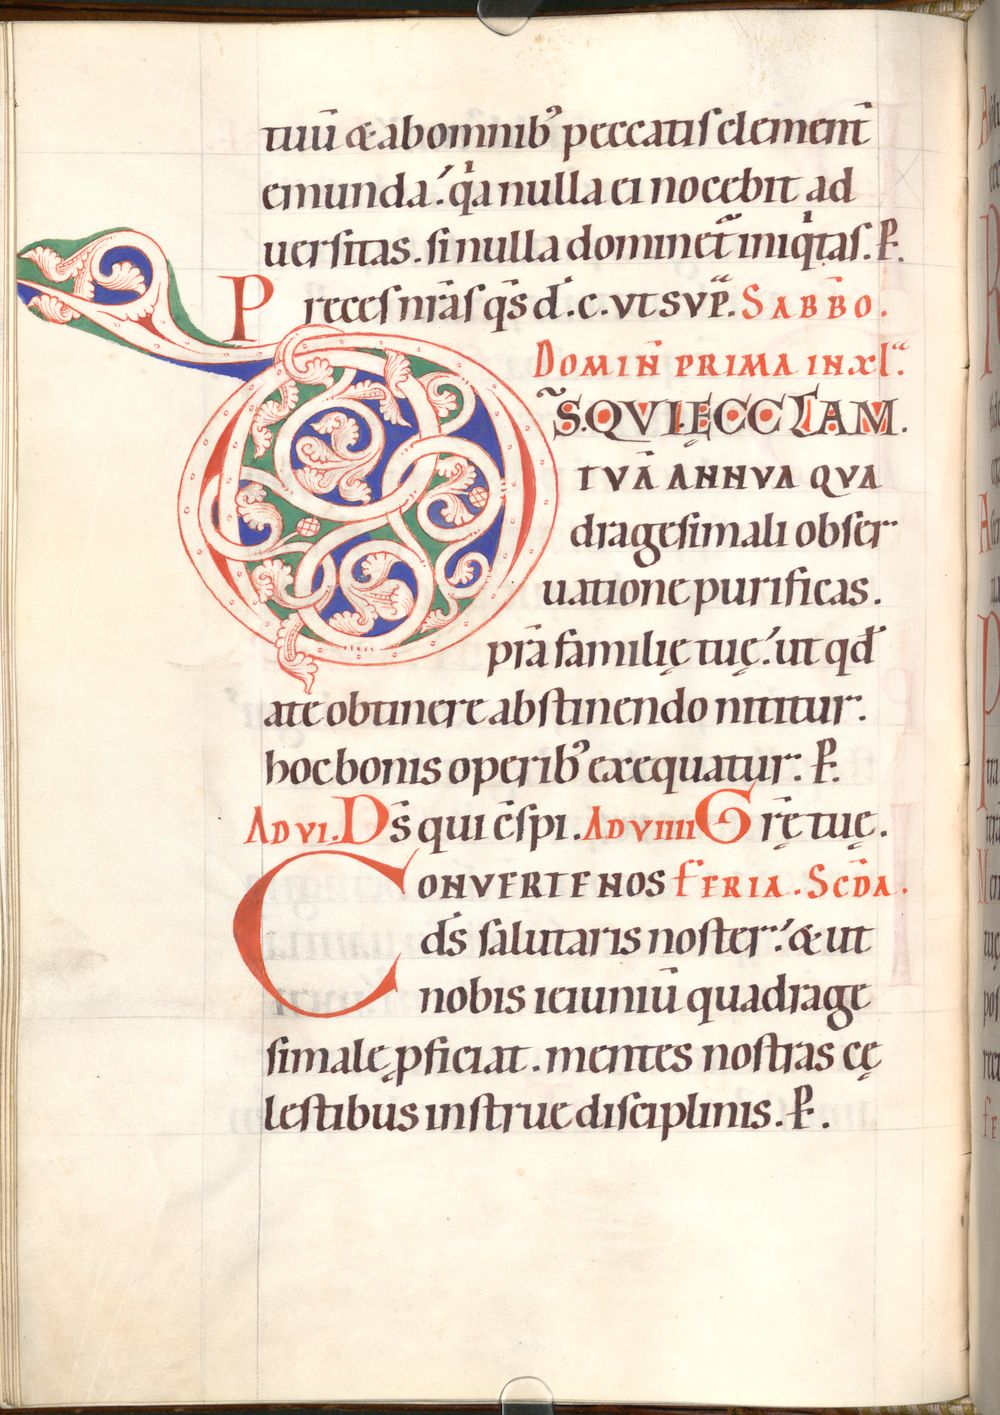 tuū & ab omnib' peccatis clement̄
emunda. q̇a nulla ei nocebit ad
uersitas. si nulla dominet̄ iniq̇tas. P.
Preces nr̄as q̄s d̄. c. vt svp̄. SABBO.
DOMIN̄ PRIMA IN XL.ᵃ
D̄S. QVI ĘCCLAM.
TVĀ ANNVA QVA
dragesimali obser
uatione purificas.
pr̄a familię tuę. ut qd̄
a te obtinere abstinendo nititur.
hoc bonis operib' exequatur. P.
AD VI. Ds̄ qui c̄spi. AD VIIII Gr̄ę tuę.
CONVERTE NOS FERIA. SC̄DA.
ds̄ salutaris noster. & ut
nobis ieiuniū quadrage
simale ꝓficiat. mentes nostras cę
lestibus instrue disciplinis. P.